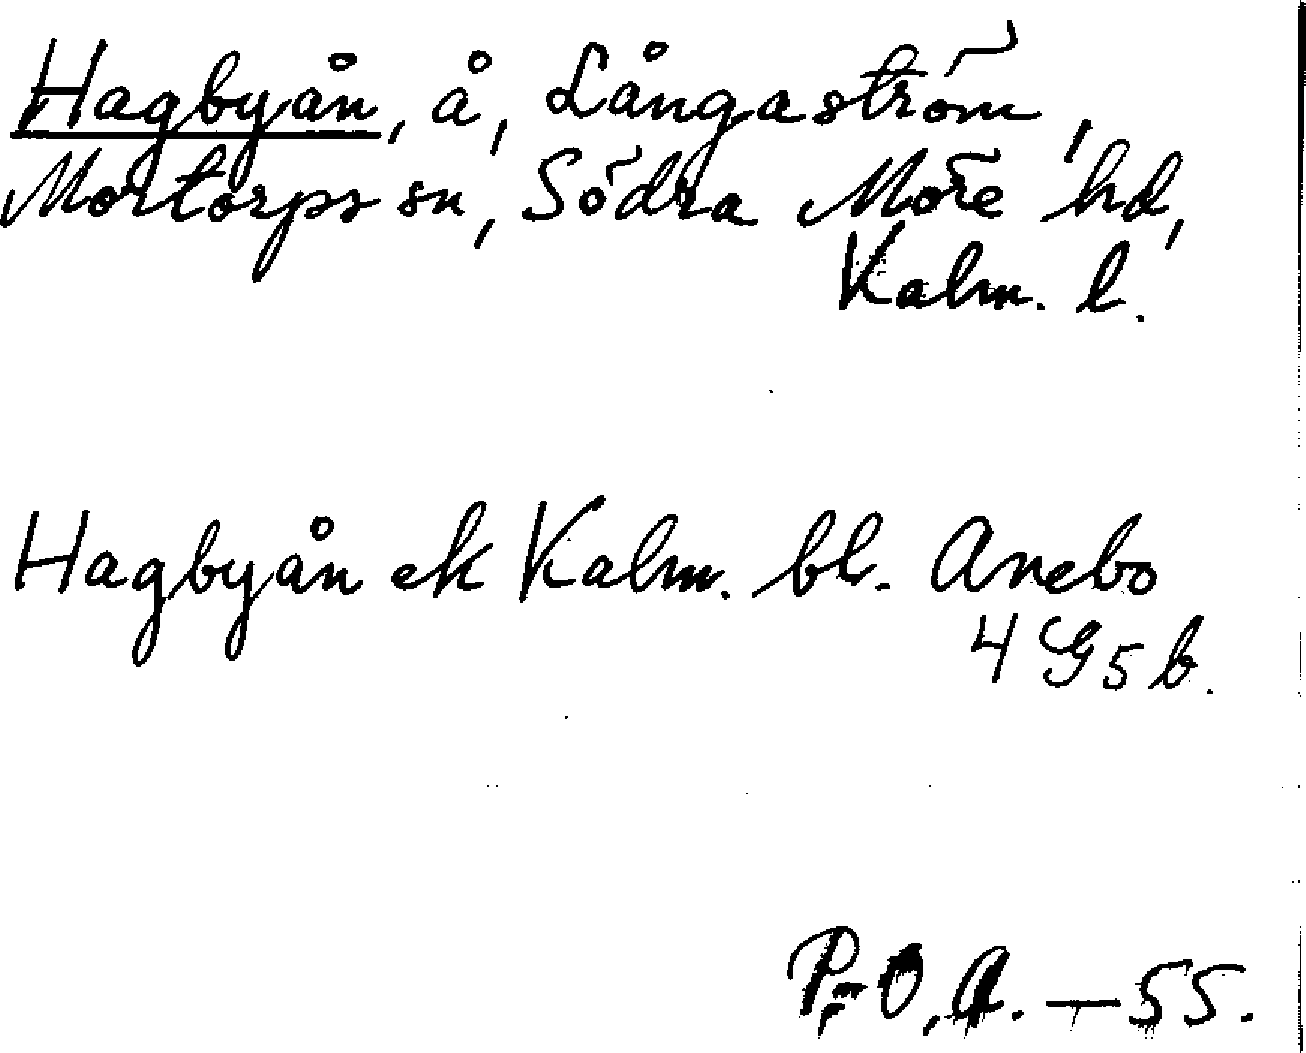 Hagbyån, å, Långaström,
Mortorps sn, Södra Möre hd,
Kalm. l.
Hagbyån ek Kalm. bl. Anebo
4 G 5 b.
P.-O, A. - 55.